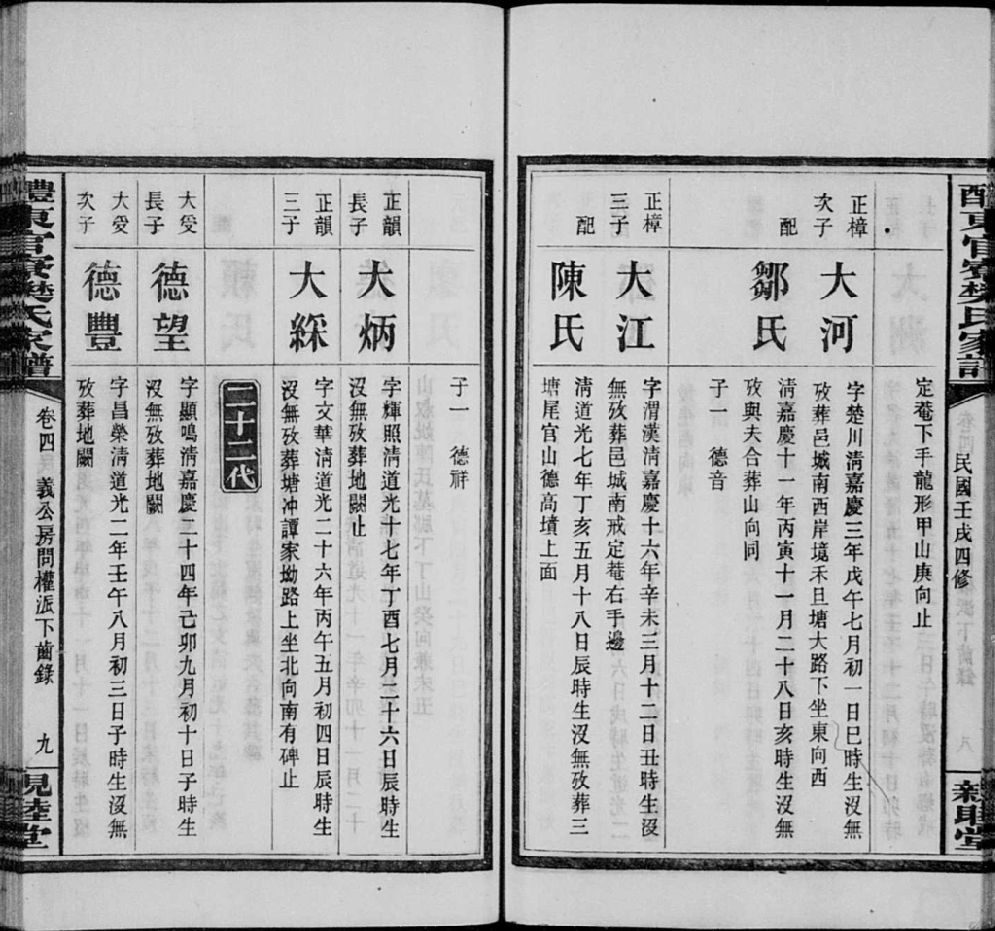 醴東官寮樊氏家譜
民國壬戌四修
親睦堂
定菴下手龍形甲山庚向止
正樟
次子
大河
字楚川淸嘉慶三年戊午七月初一日巳時生沒無
攷葬邑城南西岸境禾旦塘大路下坐東向西
配
鄒氏
淸嘉慶十一年丙寅十一月二十八日亥時生沒無
攷與夫合葬山向同
子一 德音
正樟
三子
大江
字渭漢淸嘉慶十六年辛未三月十二日丑時生沒
無攷葬邑城南戒定菴右手邊
配
陳氏
淸道光七年丁亥五月十八日辰時生沒無攷葬三
塘尾官山德高墳上面
子一 德祥
正韻
長子
大炳
字輝照淸道光十七年丁酉七月二十六日辰時生
沒無攷葬地闕止
正韻
三子
大綵
字文華淸道光二十六年丙午五月初四日辰時生
沒無攷葬塘冲譚家坳路上坐北向南有碑止
二十二代
大受
長子
德望
字顯鳴淸嘉慶二十四年己卯九月初十日子時生
沒無攷葬地闕
大受
次子
德豐
字昌榮淸道光二年壬午八月初三日子時生沒無
攷葬地闕
醴東官寮樊氏家譜
卷四 義公房問權派下齒錄
九
親睦堂